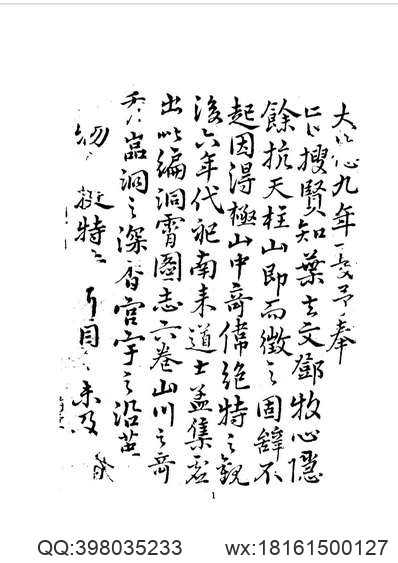 大德九年
旨搜賢知葉君文鄧牧心隱
餘杭天柱山即而徵之固辭不
起因得極山中奇偉絕特之觀
後六年代祀南來道士孟集虛
出此編洞霄圖志六卷山川之奇
秀巖洞之深杳宮宇之沿革
特
目 未及
1
QQ:398035233 wx:18161500127